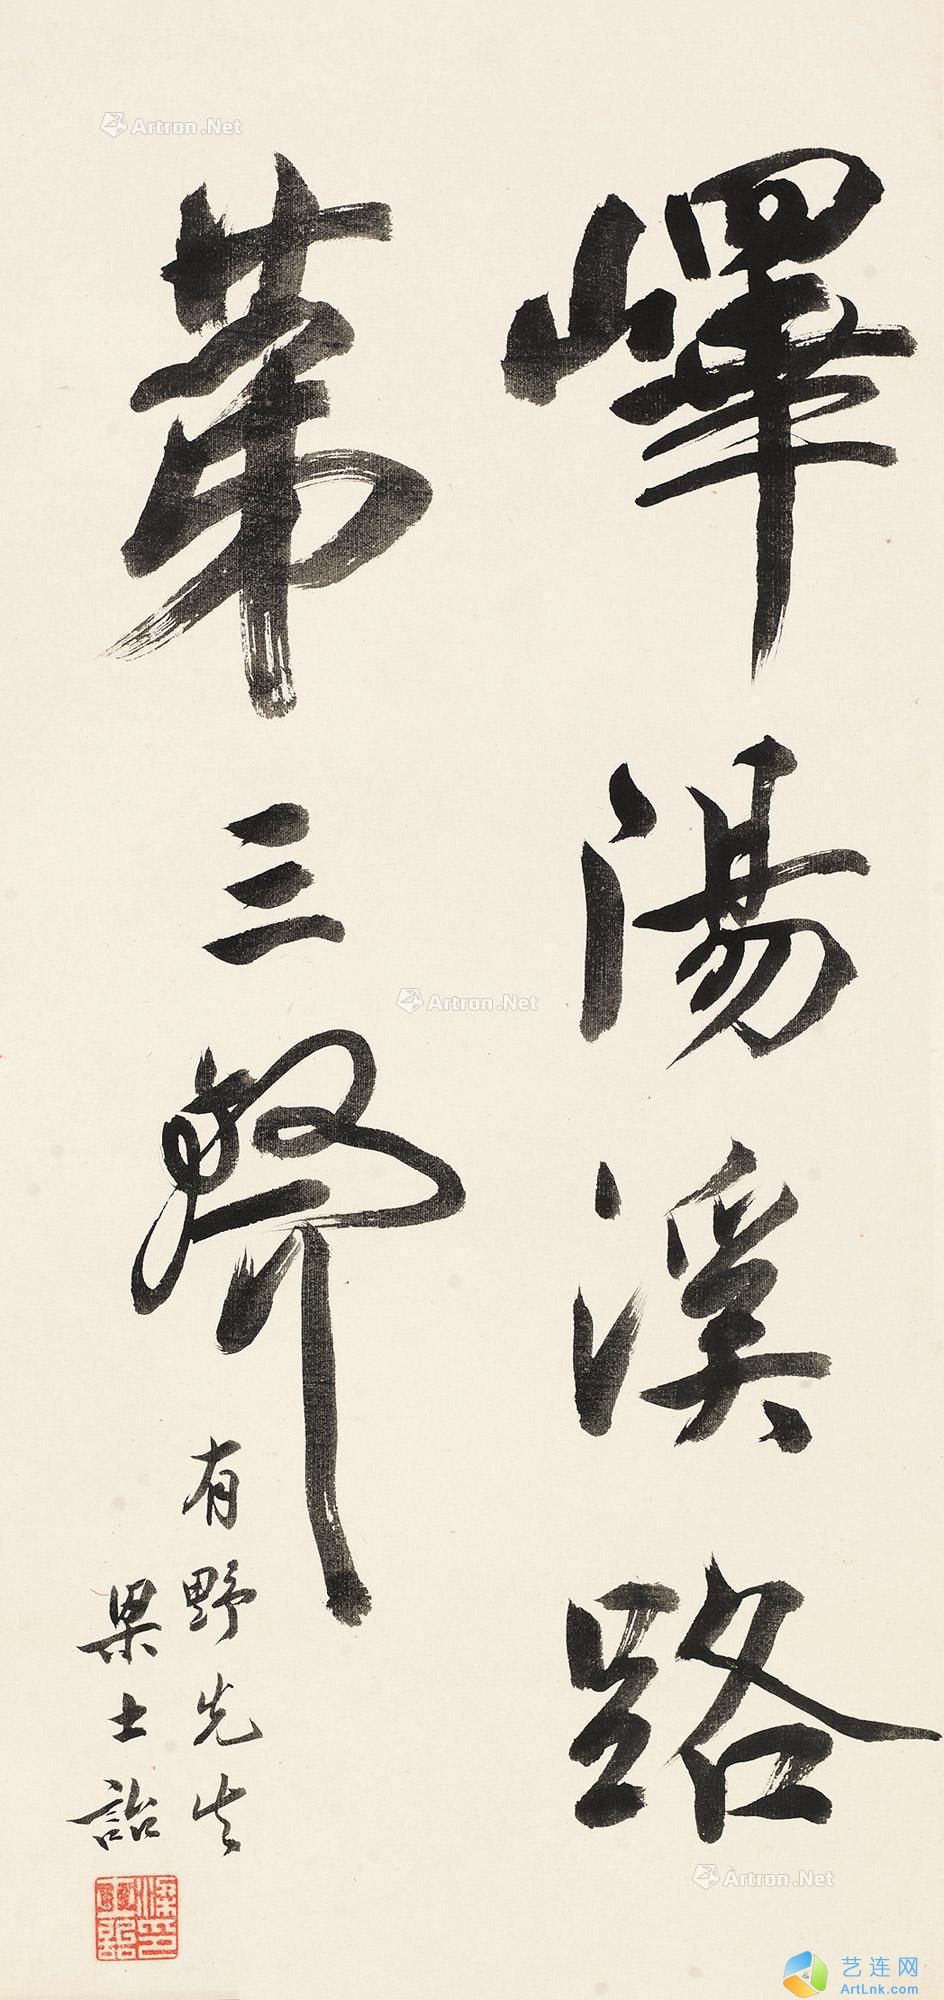 嶧陽溪路
第三聲
有野先生
梁士詒
梁士詒印
Artron.Net
Artron.Net
Artron.Net
艺连网
ArtLnk.com